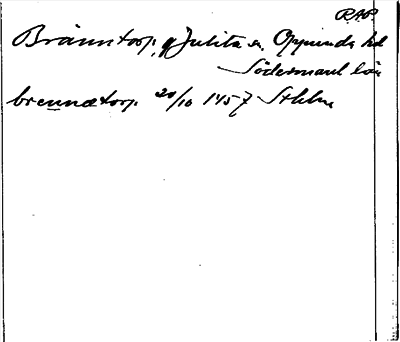 RAP.
Bränntorp, g Julita sn, Oppunda hd
Södermanl län
brennætorp 20/10 1457 Sthlm